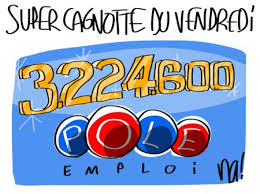 SUPER CAGNOTTE DU VENDREDI
3.224.600
POLE
EMPLOI
na!